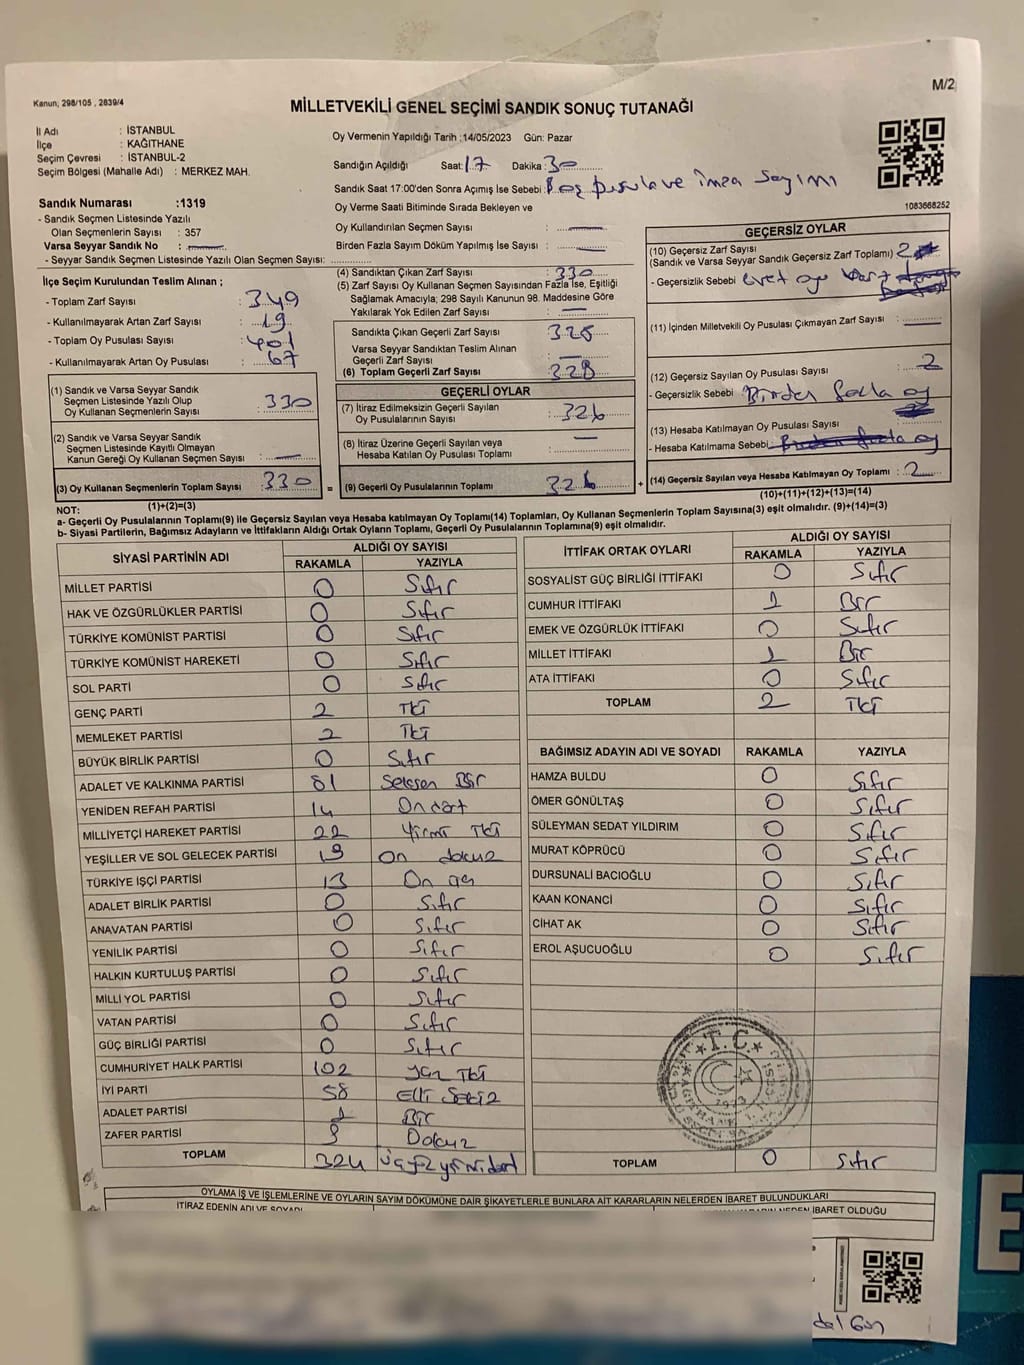 M/2
Kanun; 298/105 , 2839/4
MİLLETVEKİLİ GENEL SEÇİMİ SANDIK SONUÇ TUTANAĞI
İl Adı : İSTANBUL
İlçe : KAĞITHANE
Seçim Çevresi : İSTANBUL-2
Seçim Bölgesi (Mahalle Adı) : MERKEZ MAH.
Oy Vermenin Yapıldığı Tarih :14/05/2023 Gün: Pazar
Sandığın Açıldığı Saat: 17 Dakika : 30
Sandık Saat 17:00'den Sonra Açımış İse Sebebi : Boş pusula ve imza sayımı
1083668252
Sandık Numarası :1319
- Sandık Seçmen Listesinde Yazılı
Olan Seçmenlerin Sayısı : 357
Varsa Seyyar Sandık No :
- Seyyar Sandık Seçmen Listesinde Yazılı Olan Seçmen Sayısı:
Oy Verme Saati Bitiminde Sırada Bekleyen ve
Oy Kullandırılan Seçmen Sayısı :
Birden Fazla Sayım Döküm Yapılmış İse Sayısı :
İlçe Seçim Kurulundan Teslim Alınan ;
- Toplam Zarf Sayısı : 349
- Kullanılmayarak Artan Zarf Sayısı : 19
- Toplam Oy Pusulası Sayısı : 401
- Kullanılmayarak Artan Oy Pusulası : 67
(1) Sandık ve Varsa Seyyar Sandık
Seçmen Listesinde Yazılı Olup
Oy Kullanan Seçmenlerin Sayısı : 330
(2) Sandık ve Varsa Seyyar Sandık
Seçmen Listesinde Kayıtlı Olmayan
Kanun Gereği Oy Kullanan Seçmen Sayısı :
(3) Oy Kullanan Seçmenlerin Toplam Sayısı : 330
(1)+(2)=(3)
(4) Sandıktan Çıkan Zarf Sayısı : 330
(5) Zarf Sayısı Oy Kullanan Seçmen Sayısından Fazla İse, Eşitliği
Sağlamak Amacıyla; 298 Sayılı Kanunun 98. Maddesine Göre
Yakılarak Yok Edilen Zarf Sayısı :
Sandıkta Çıkan Geçerli Zarf Sayısı 328
Varsa Seyyar Sandıktan Teslim Alınan
Geçerli Zarf Sayısı :
(6) Toplam Geçerli Zarf Sayısı : 328
GEÇERLİ OYLAR
(7) İtiraz Edilmeksizin Geçerli Sayılan
Oy Pusulalarının Sayısı : 326
(8) İtiraz Üzerine Geçerli Sayılan veya
Hesaba Katılan Oy Pusulası Toplamı :
= (9) Geçerli Oy Pusulalarının Toplamı 326
GEÇERSİZ OYLAR
(10) Geçersiz Zarf Sayısı
(Sandık ve Varsa Seyyar Sandık Geçersiz Zarf Toplamı) 2
- Geçersizlik Sebebi : Evet oy
(11) İçinden Milletvekili Oy Pusulası Çıkmayan Zarf Sayısı :
(12) Geçersiz Sayılan Oy Pusulası Sayısı : 2
- Geçersizlik Sebebi : Birden fazla oy
(13) Hesaba Katılmayan Oy Pusulası Sayısı :
- Hesaba Katılmama Sebebi: Birden fazla oy
+ (14) Geçersiz Sayılan veya Hesaba Katılmayan Oy Toplamı : 2
(10)+(11)+(12)+(13)=(14)
NOT:
a- Geçerli Oy Pusulalarının Toplamı(9) ile Geçersiz Sayılan veya Hesaba katılmayan Oy Toplamı(14) Toplamları, Oy Kullanan Seçmenlerin Toplam Sayısına(3) eşit olmalıdır. (9)+(14)=(3)
b- Siyasi Partilerin, Bağımsız Adayların ve İttifakların Aldığı Ortak Oyların Toplamı, Geçerli Oy Pusulalarının Toplamına(9) eşit olmalıdır.
SİYASİ PARTİNİN ADI ALDIĞI OY SAYISI
RAKAMLA YAZIYLA
MİLLET PARTİSİ 0 Sıfır
HAK VE ÖZGÜRLÜKLER PARTİSİ 0 Sıfır
TÜRKİYE KOMÜNİST PARTİSİ 0 Sıfır
TÜRKİYE KOMÜNİST HAREKETİ 0 Sıfır
SOL PARTİ 0 Sıfır
GENÇ PARTİ 2 İki
MEMLEKET PARTİSİ 2 İki
BÜYÜK BİRLİK PARTİSİ 0 Sıfır
ADALET VE KALKINMA PARTİSİ 81 Seksen Bir
YENİDEN REFAH PARTİSİ 14 On dört
MİLLİYETÇİ HAREKET PARTİSİ 22 Yirmi İki
YEŞİLLER VE SOL GELECEK PARTİSİ 19 On dokuz
TÜRKİYE İŞÇİ PARTİSİ 13 On üç
ADALET BİRLİK PARTİSİ 0 Sıfır
ANAVATAN PARTİSİ 0 Sıfır
YENİLİK PARTİSİ 0 Sıfır
HALKIN KURTULUŞ PARTİSİ 0 Sıfır
MİLLİ YOL PARTİSİ 0 Sıfır
VATAN PARTİSİ 0 Sıfır
GÜÇ BİRLİĞİ PARTİSİ 0 Sıfır
CUMHURİYET HALK PARTİSİ 102 Yüz İki
İYİ PARTİ 58 Elli Sekiz
ADALET PARTİSİ 1 Bir
ZAFER PARTİSİ 9 Dokuz
TOPLAM 324 Üçyüz yirmidört
İTTİFAK ORTAK OYLARI ALDIĞI OY SAYISI
RAKAMLA YAZIYLA
SOSYALİST GÜÇ BİRLİĞİ İTTİFAKI 0 Sıfır
CUMHUR İTTİFAKI 1 Bir
EMEK VE ÖZGÜRLÜK İTTİFAKI 0 Sıfır
MİLLET İTTİFAKI 1 Bir
ATA İTTİFAKI 0 Sıfır
TOPLAM 2 İki
BAĞIMSIZ ADAYIN ADI VE SOYADI RAKAMLA YAZIYLA
HAMZA BULDU 0 Sıfır
ÖMER GÖNÜLTAŞ 0 Sıfır
SÜLEYMAN SEDAT YILDIRIM 0 Sıfır
MURAT KÖPRÜCÜ 0 Sıfır
DURSUNALİ BACIOĞLU 0 Sıfır
KAAN KONANCİ 0 Sıfır
CİHAT AK 0 Sıfır
EROL AŞUCUOĞLU 0 Sıfır
T.C.
1923
TOPLAM 0 Sıfır
OYLAMA İŞ VE İŞLEMLERİNE VE OYLARIN SAYIM DÖKÜMÜNE DAİR ŞİKAYETLERLE BUNLARA AİT KARARLARIN NELERDEN İBARET BULUNDUKLARI
İTİRAZ EDENİN ADI VE SOYADI
NEDEN İBARET OLDUĞU
E